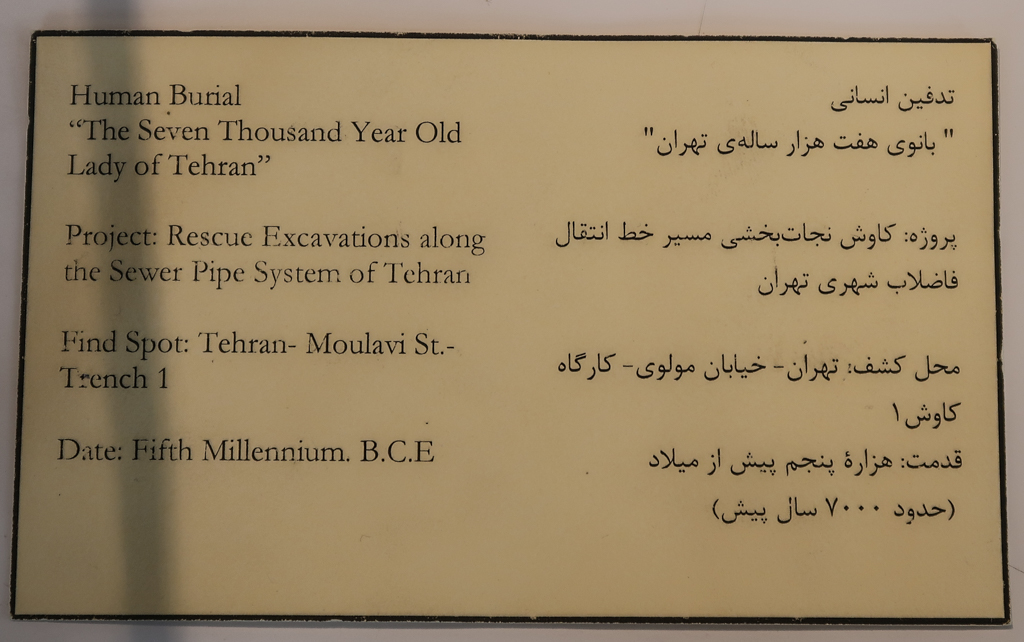 Human Burial
“The Seven Thousand Year Old
Lady of Tehran”
Project: Rescue Excavations along
the Sewer Pipe System of Tehran
Find Spot: Tehran- Moulavi St.-
Trench 1
Date: Fifth Millennium. B.C.E
تدفین انسانی
" بانوی هفت هزار ساله‌ی تهران"
پروژه: کاوش نجات‌بخشی مسیر خط انتقال
فاضلاب شهری تهران
محل کشف: تهران- خیابان مولوی- کارگاه
کاوش ۱
قدمت: هزارۀ پنجم پیش از میلاد
(حدود ۷۰۰۰ سال پیش)